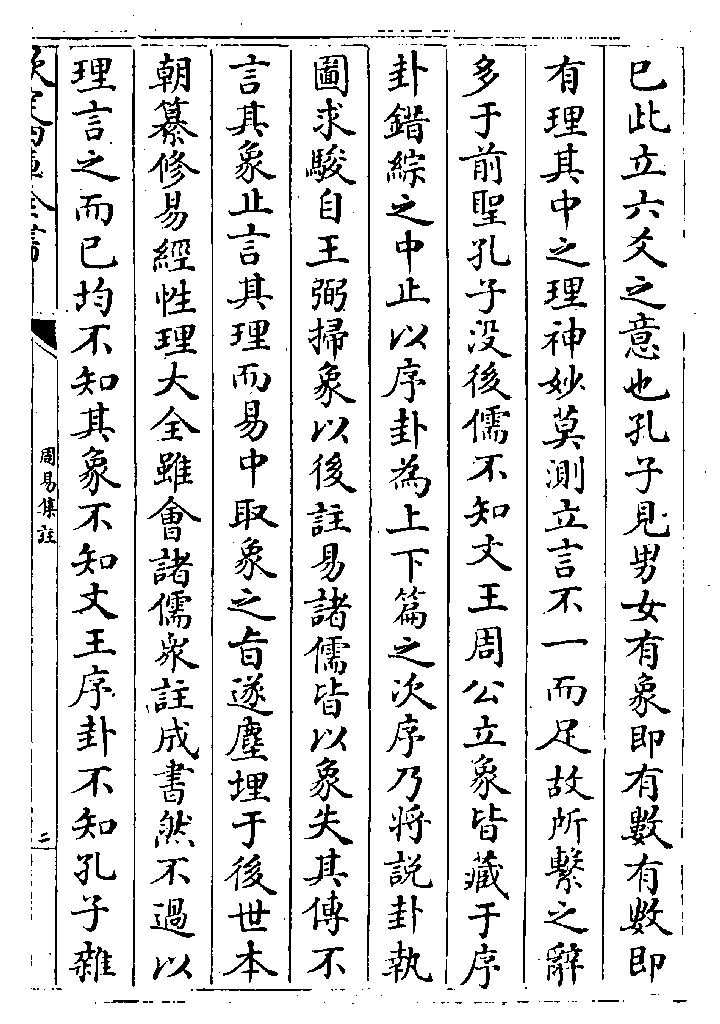 已此立六爻之意也孔子見男女有象即有數有數即
有理其中之理神妙莫測立言不一而足故所繫之辭
多于前聖孔子没後儒不知文王周公立象皆藏于序
卦錯綜之中止以序卦為上下篇之次序乃將說卦執
圖求駿自王弼掃象以後註易諸儒皆以象失其傳不
言其象止言其理而易中取象之旨遂塵埋于後世本
朝纂修易經性理大全雖會諸儒衆註成書然不過以
理言之而已均不知其象不知文王序卦不知孔子雜
欽定四庫全書
周易集註
二